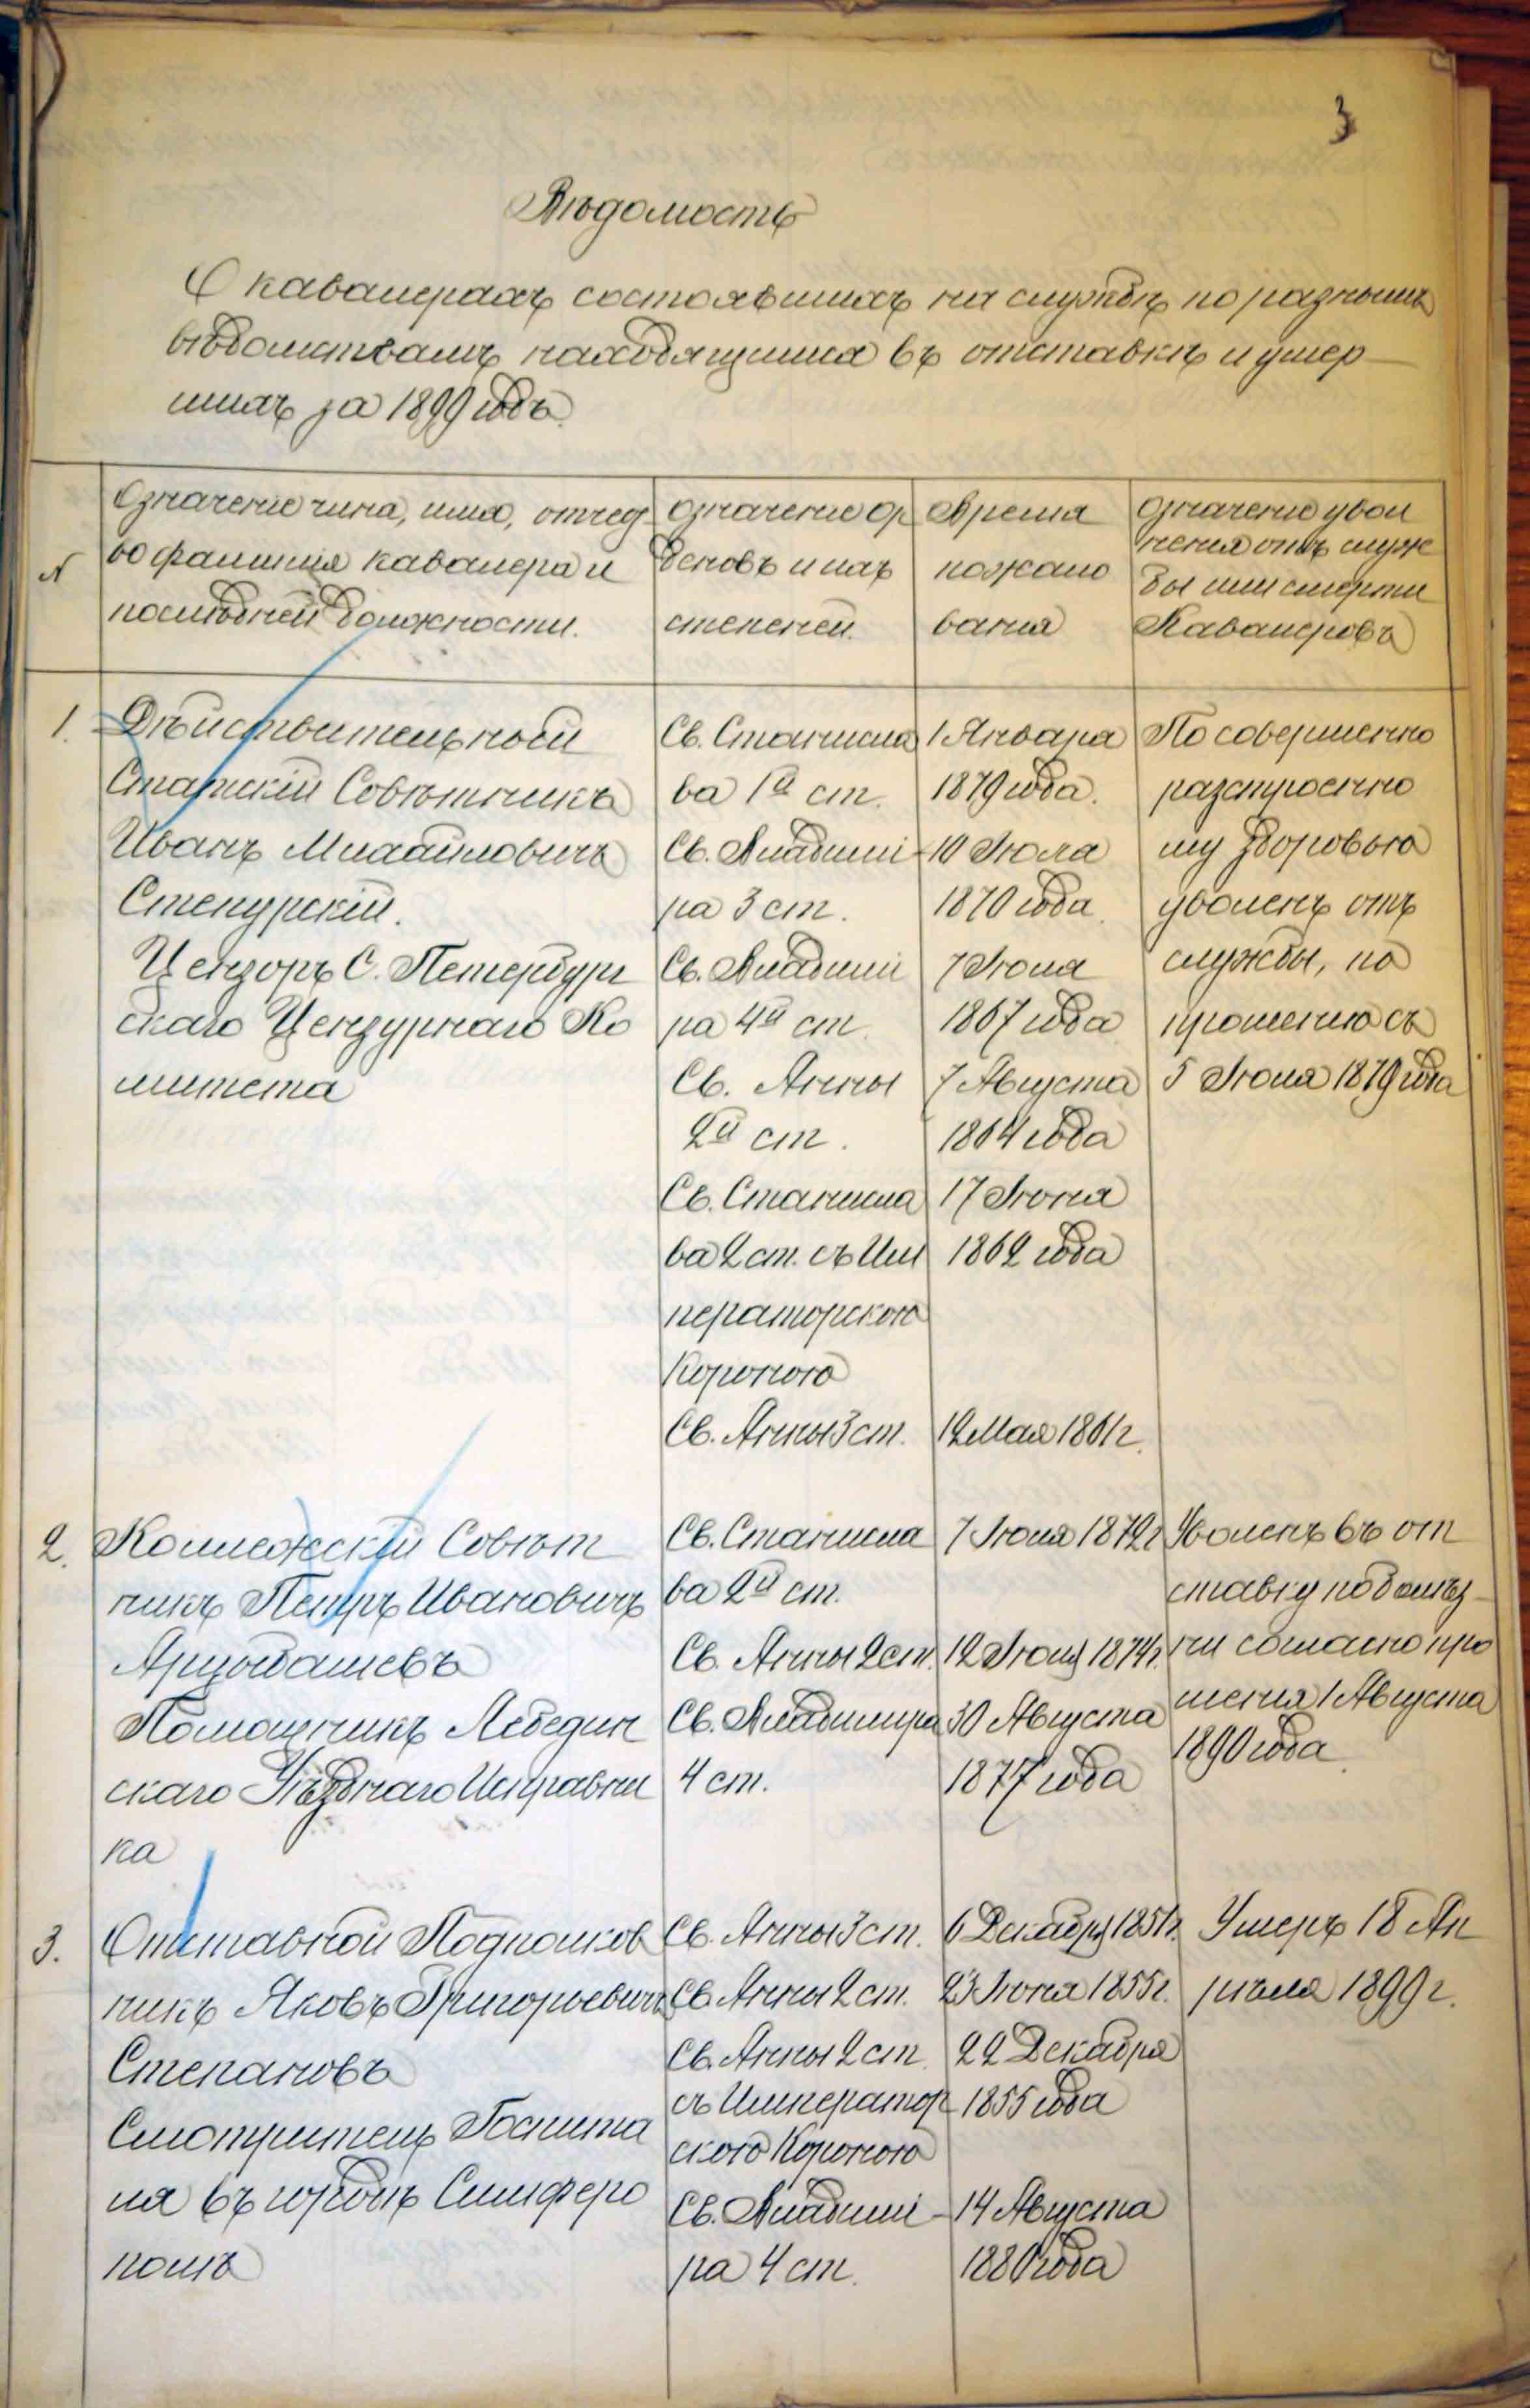 3
Вѣдомость
О кавалерахъ состоявшихъ на службѣ по разнымъ
вѣдомствамъ находящихся въ отставкѣ и умер
шихъ за 1899 годъ.
N
Означеніе чина, имя, отчест
во фамилія кавалера и
послѣдней должности.
Означеніе ор
деновъ и ихъ
степеней.
Время
пожало
ванія
Означеніе уволь
ненія отъ служ
бы или смерти
Кавалеровъ
1.
Дѣйствительный
Статскій Совѣтникъ
Иванъ Михайловичъ
Стенурскій.
Цензоръ С. Петербург
скаго Цензурнаго Ко
митета
Св. Станисла
ва 1й ст.
Св. Владимі-
ра 3 ст.
Св. Владимі
ра 4й ст.
Св. Анны
2й ст.
Св. Станисла
ва 2 ст. съ Им
ператорскою
Короною
Св. Анны 3 ст.
1 Января
1879 года.
10 Іюля
1870 года.
7 Іюля
1867 года
7 Августа
1864 года
17 Іюня
1862 года
12 Мая 1861 г.
По совершенно
разстроенно
му здоровью
уволенъ отъ
службы, по
прошенію съ
5 Іюля 1879 года
2.
Коллежскій Совѣт
никъ Петръ Ивановичъ
Арцыбашевъ
Помощникъ Лебедин
скаго Уѣзднаго Исправни
ка
Св. Станисла
ва 2й ст.
Св. Анны 2 ст.
Св. Владимира
4 ст.
7 Іюля 1872 г
12 Іюля 1874 г.
30 Августа
1877 года
Уволенъ въ от
ставку по болѣз-
ни согласно про
шенія 1 Августа
1890 года.
3.
Отставной Подполков
никъ Яковъ Григорьевичъ
Степановъ
Смотритель Госпита
ля въ городѣ Симферо
полѣ
Св. Анны 3 ст.
Св. Анны 2 ст.
Св. Анны 2 ст.
съ Император
скою Короною
Св. Владимі-
ра 4 ст.
6 Декабря 1851 г.
23 Іюня 1855 г.
22 Декабря
1855 года
14 Августа
1880 года
Умеръ 18 Ап
рѣля 1899 г.